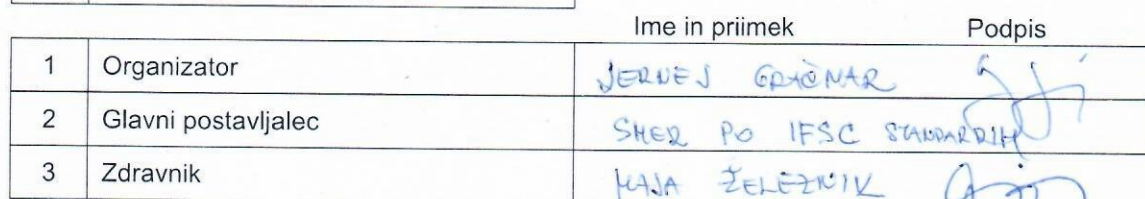 Ime in priimek Podpis
1 Organizator JERNEJ GRAČNAR
2 Glavni postavljalec SMER PO IFSC STANDARDIH
3 Zdravnik MAJA ŽELEZNIK